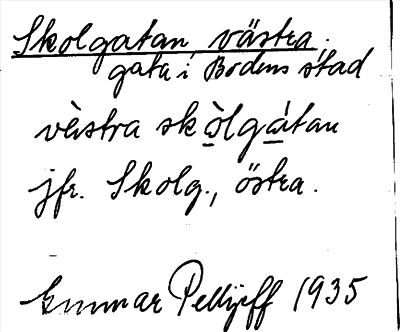 Skolgatan, västra.
gata i Bodens stad
vàstra skòlgàtan
jfr. Skolg., östra.
Gunnar Pellijeff 1935